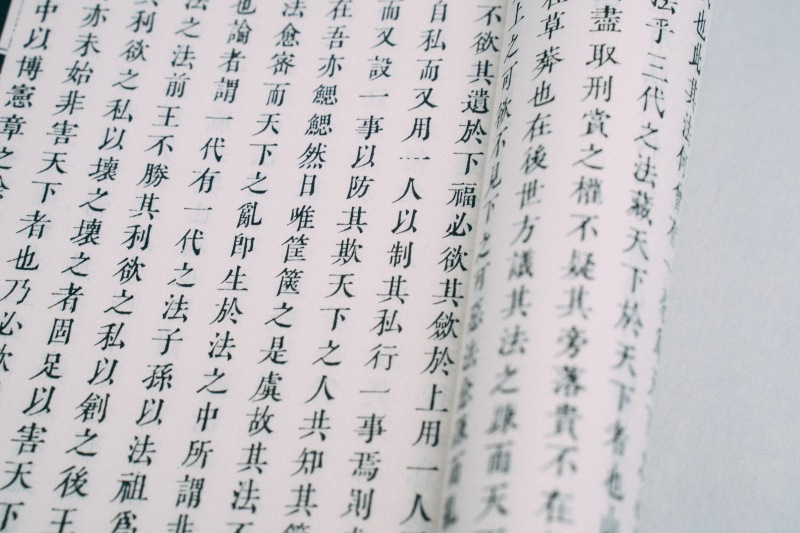 也此其法何曾有一
法乎三代之法藏天下於天下者也山
盡取刑賞之權不疑其旁落貴不在
草莽也在後世方議其法之疎而天
上之可欲不見下之可惡法愈疎而亂
不欲其遺於下福必欲其斂於上用一人
自私而又用一人以制其私行一事焉則
而又設一事以防其欺天下之人共知其筐
在吾亦鰓鰓然日唯筐篋之是虞故其法不
法愈密而天下之亂即生於法之中所謂非
也論者謂一代有一代之法子孫以法祖爲
法之法前王不勝其利欲之私以創之後王
利欲之私以壞之壞之者固足以害天下
亦未始非害天下者也乃必欲
中以博憲章之餘